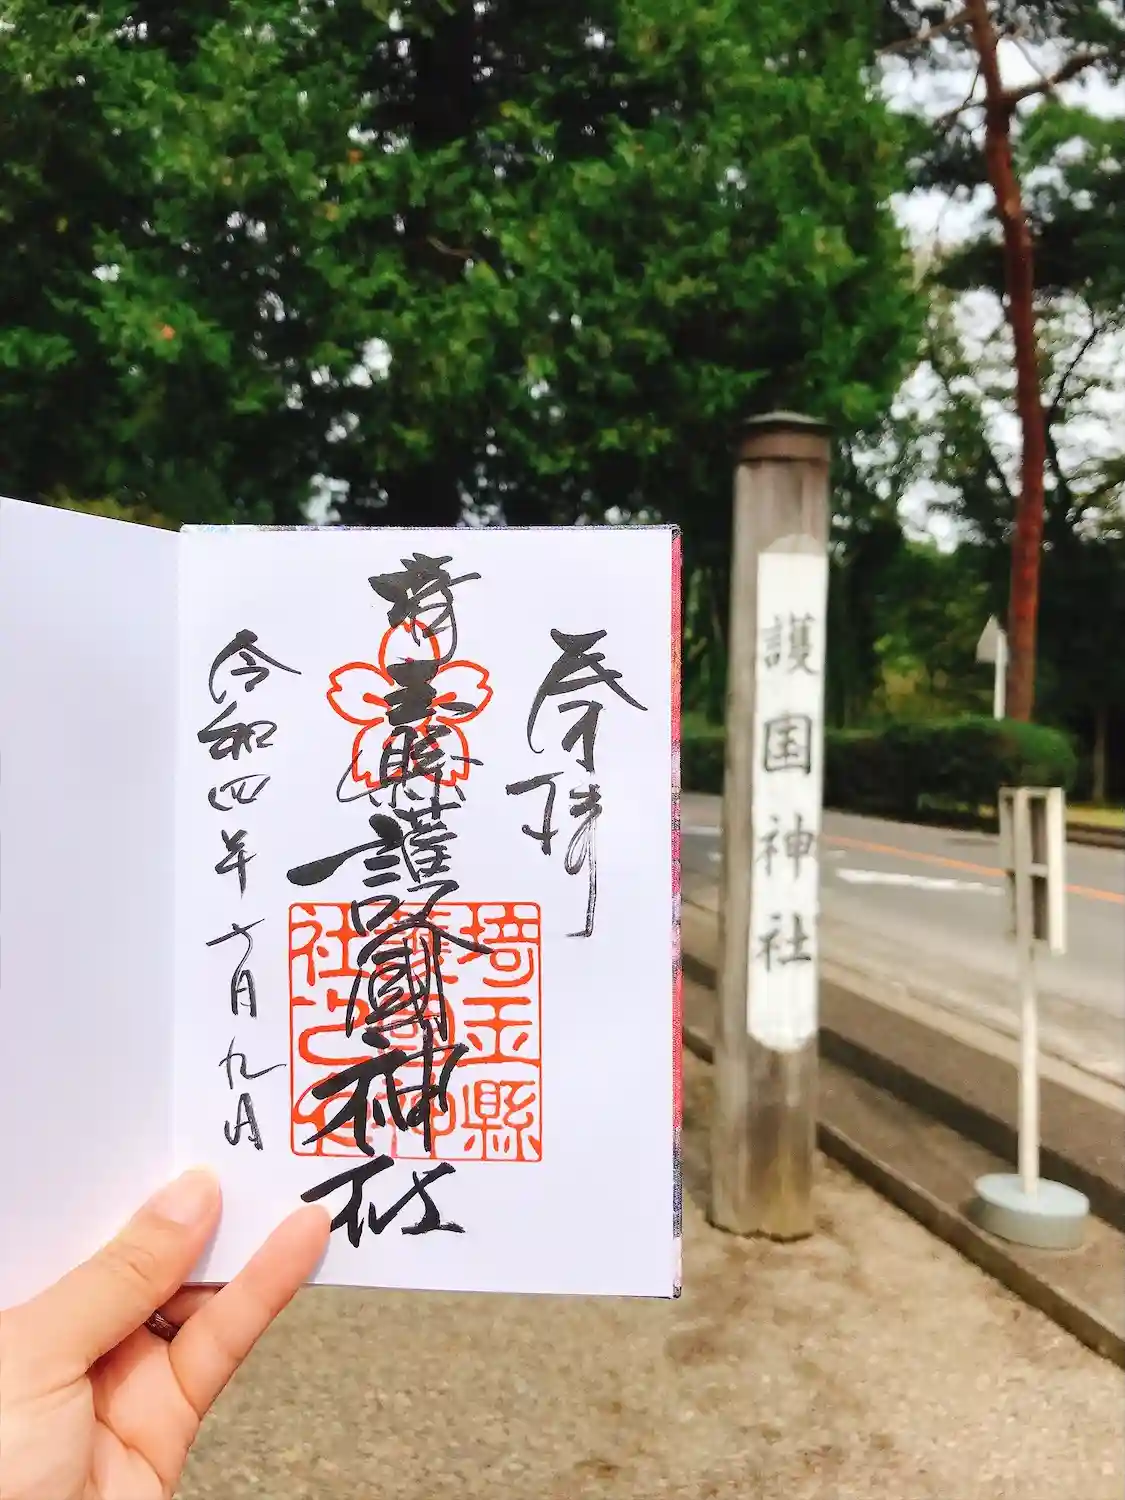 奉拝
埼玉縣護國神社
埼玉縣
護國神
社之印
令和四年十月九日
護国神社